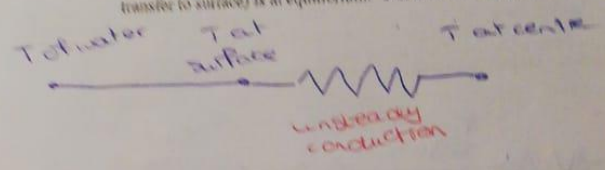 transfer to surface) is at equilibrium.
T of water T at surface T at centre
unsteady
conduction